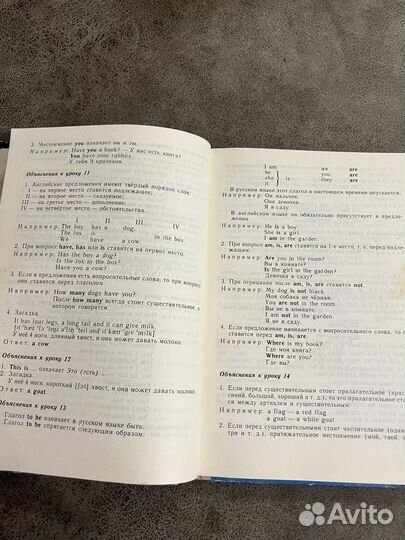 3. Местоимение you означает вы и ты.
Например: Have you a book? — У вас есть книга?
You have nine rabbits.
У тебя 9 кроликов.
Объяснения к уроку 11
1. Английские предложения имеют твёрдый порядок слов:
I — на первое место ставится подлежащее,
II — на второе — сказуемое,
III — на третье место — дополнение,
IV — на четвёртое место — обстоятельства.
I II III IV
Например: The boy has a dog.
The fox is in the box.
We have a cow.
2. При вопросе have, has или is ставятся на первое место.
Например: Has the boy a dog?
Is the fox in the box?
Have you a cow?
3. Если в предложении есть вопросительные слова, то при вопросе
они ставятся перед глаголом.
Например: How many dogs have you?
После how many всегда стоит существительное, о
котором говорится.
4. Загадка.
It has four legs, a long tail and it can give milk.
У неё 4 ноги, длинный хвост, и она может давать молоко.
Ответ: a cow.
Объяснения к уроку 12
1. This is... означает Это (есть)...
2. Загадка.
У неё 4 ноги, короткий [ʃɔ:t] хвост, и она может давать молоко.
Ответ: a goat.
Объяснения к уроку 13
Глагол to be означает в русском языке быть.
Глагол to be спрягается следующим образом:
I am we are
he
she is you are
it they are
В русском языке этот глагол в настоящем времени опускается.
Например: Он мальчик.
Она девочка.
Я в саду.
В английском языке он обязательно присутствует в предло-
жении.
Например: He is a boy.
She is a girl.
I am in the garden.
2. При вопросе am, is, are ставятся на 1-е место, т. е. перед подле-
жащим.
Например: Are you in the room?
Вы в комнате?
Is the girl in the garden?
Девочка в саду?
3. При отрицании после am, is, are ставится not.
Например: My dog is not black.
Моя собака не чёрная.
You are not in the room.
Вы не в комнате.
I am not in the garden.
Я не в саду.
4. Если предложение начинается с вопросительного слова, то они
ставятся перед am, is, are.
Например: Where is my book?
Где моя книга?
Where are you?
Где вы?
Объяснения к уроку 14
1. Если перед существительным стоит прилагательное (крас
синий, большой, хороший и т. д.), то это прилагательное стави
ся между артиклем и существительным.
Например: a flag — a red flag
a goat — a white goat
2. Если перед существительным стоит числительное (один
три и т. д.), притяжательное местоимение (мой, твой,
Avito